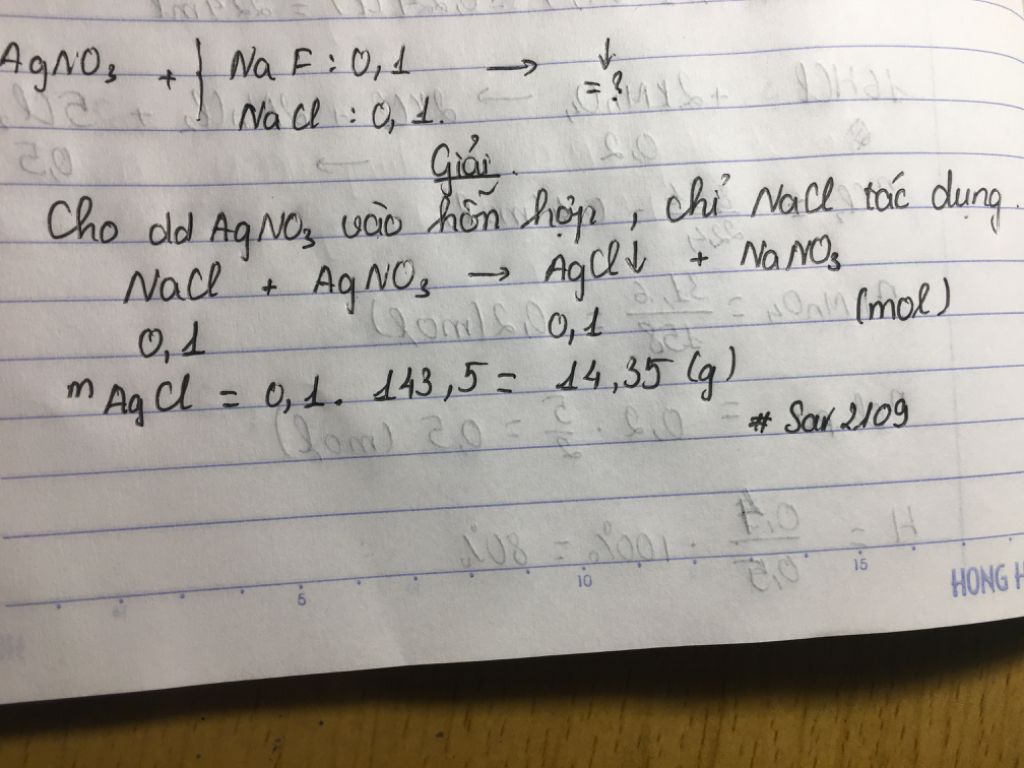 AgNO₃ + { NaF : 0,1 → ↓ = ?
NaCl : 0,1.
Giải.
Cho dd AgNO₃ vào hỗn hợp, chỉ NaCl tác dụng.
NaCl + AgNO₃ → AgCl↓ + NaNO₃
0,1 0,1 (mol)
m AgCl = 0,1. 143,5 = 14,35 (g)
# Sax 2109
5 10 15
HONG H